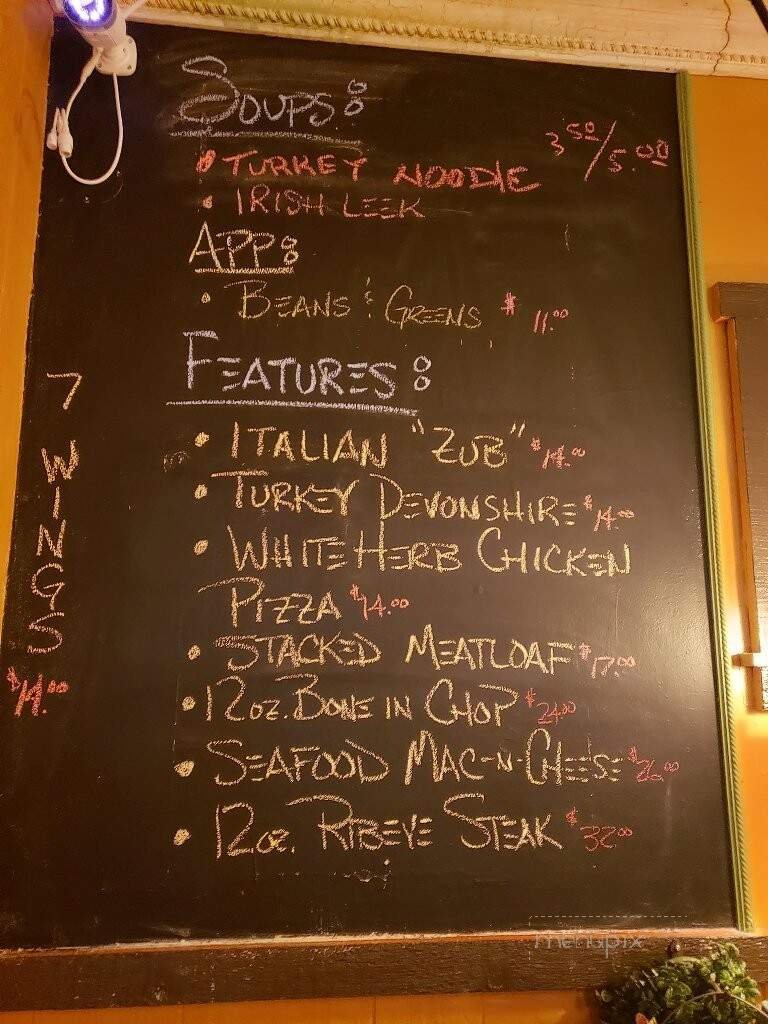 SOUPS:
• TURKEY NOODLE 3.50/5.00
• IRISH LEEK
APP:
• BEANS & GREENS $11.00
FEATURES:
• ITALIAN "ZUB" $14.00
• TURKEY DEVONSHIRE $14.00
• WHITE HERB CHICKEN
PIZZA $14.00
• STACKED MEATLOAF $17.00
• 12 OZ. BONE IN CHOP $24.00
• SEAFOOD MAC-N-CHEESE $26.00
• 12 OZ. RIBEYE STEAK $32.00
7
W
I
N
G
S
$14.00
menupix